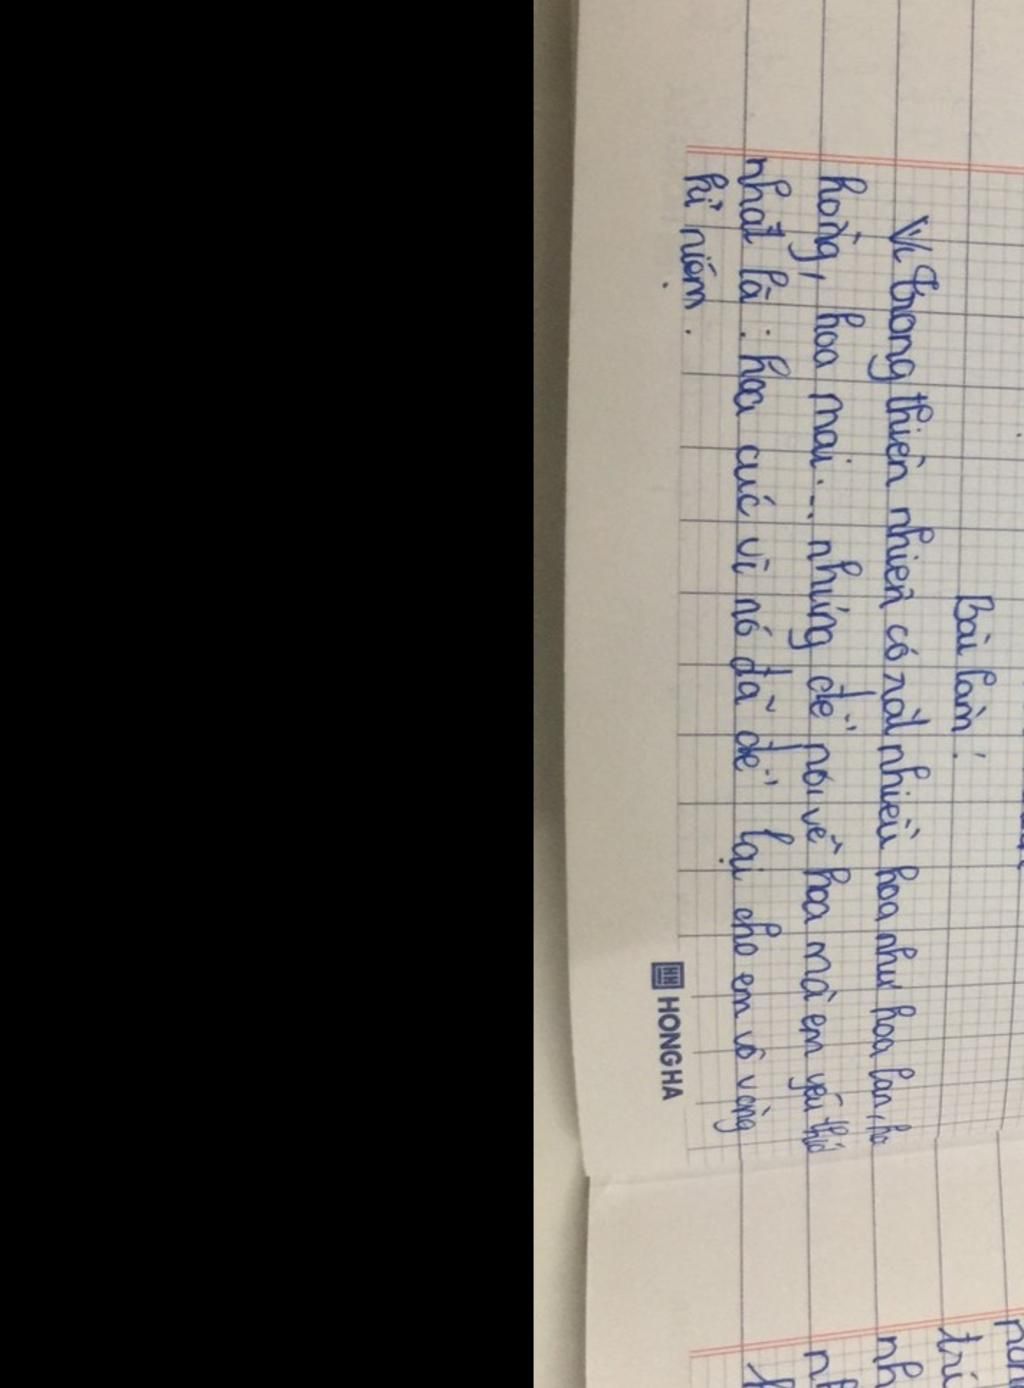 Bài làm:
Vì trong thiên nhiên có rất nhiều hoa như hoa lan, ho
hồng, hoa mai... nhưng để nói về hoa mà em yêu thíc
nhất là: hoa cúc vì nó đã để lại cho em vô vàng
kỉ niệm.
HONG HA